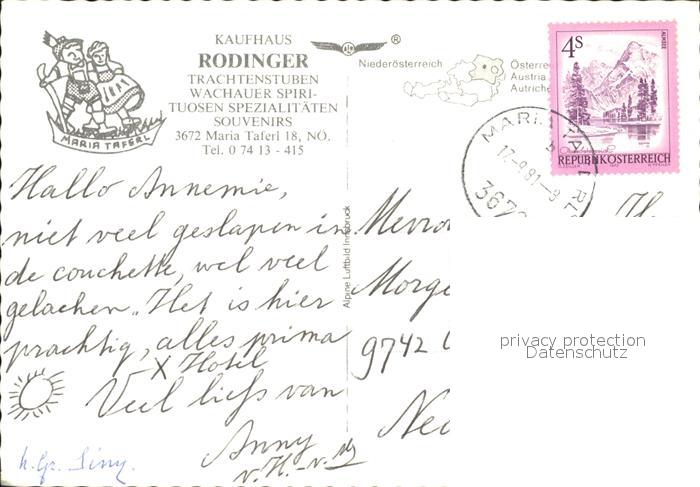 KAUFHAUS
RODINGER
TRACHTENSTUBEN
WACHAUER SPIRI-
TUOSEN SPEZIALITÄTEN
SOUVENIRS
3672 Maria Taferl 18, NÖ.
Tel. 0 74 13 - 415
MARIA TAFERL
®
Niederösterreich
Österre
Austria
Autriche
4s
ALMSEE
REPUBLIK ÖSTERREICH
17.-9.81-8
367
Alpine Luftbild Innsbruck
Hallo Annemie,
niet veel geslapen in
de couchette, wel veel
gelachen. Het is hier
prachtig, alles prima
X Hotel
Veel liefs van
Anny
v. H. - v. d
h. Gr. Siny.
Mevro
Morge
9742
Ned
privacy protection
Datenschutz